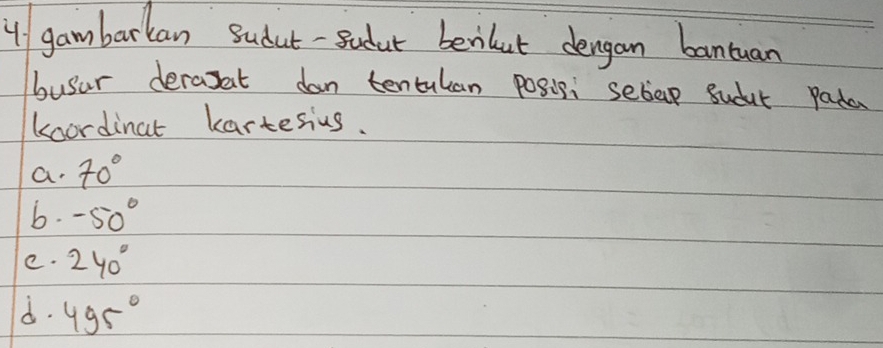 4. gambarkan sudut-sudut berikut dengan bantuan
busur derajat dan tentukan posisi setiap sudut pada
koordinat kartesius.
a. 70°
b. -50°
c. 240°
d. 495°